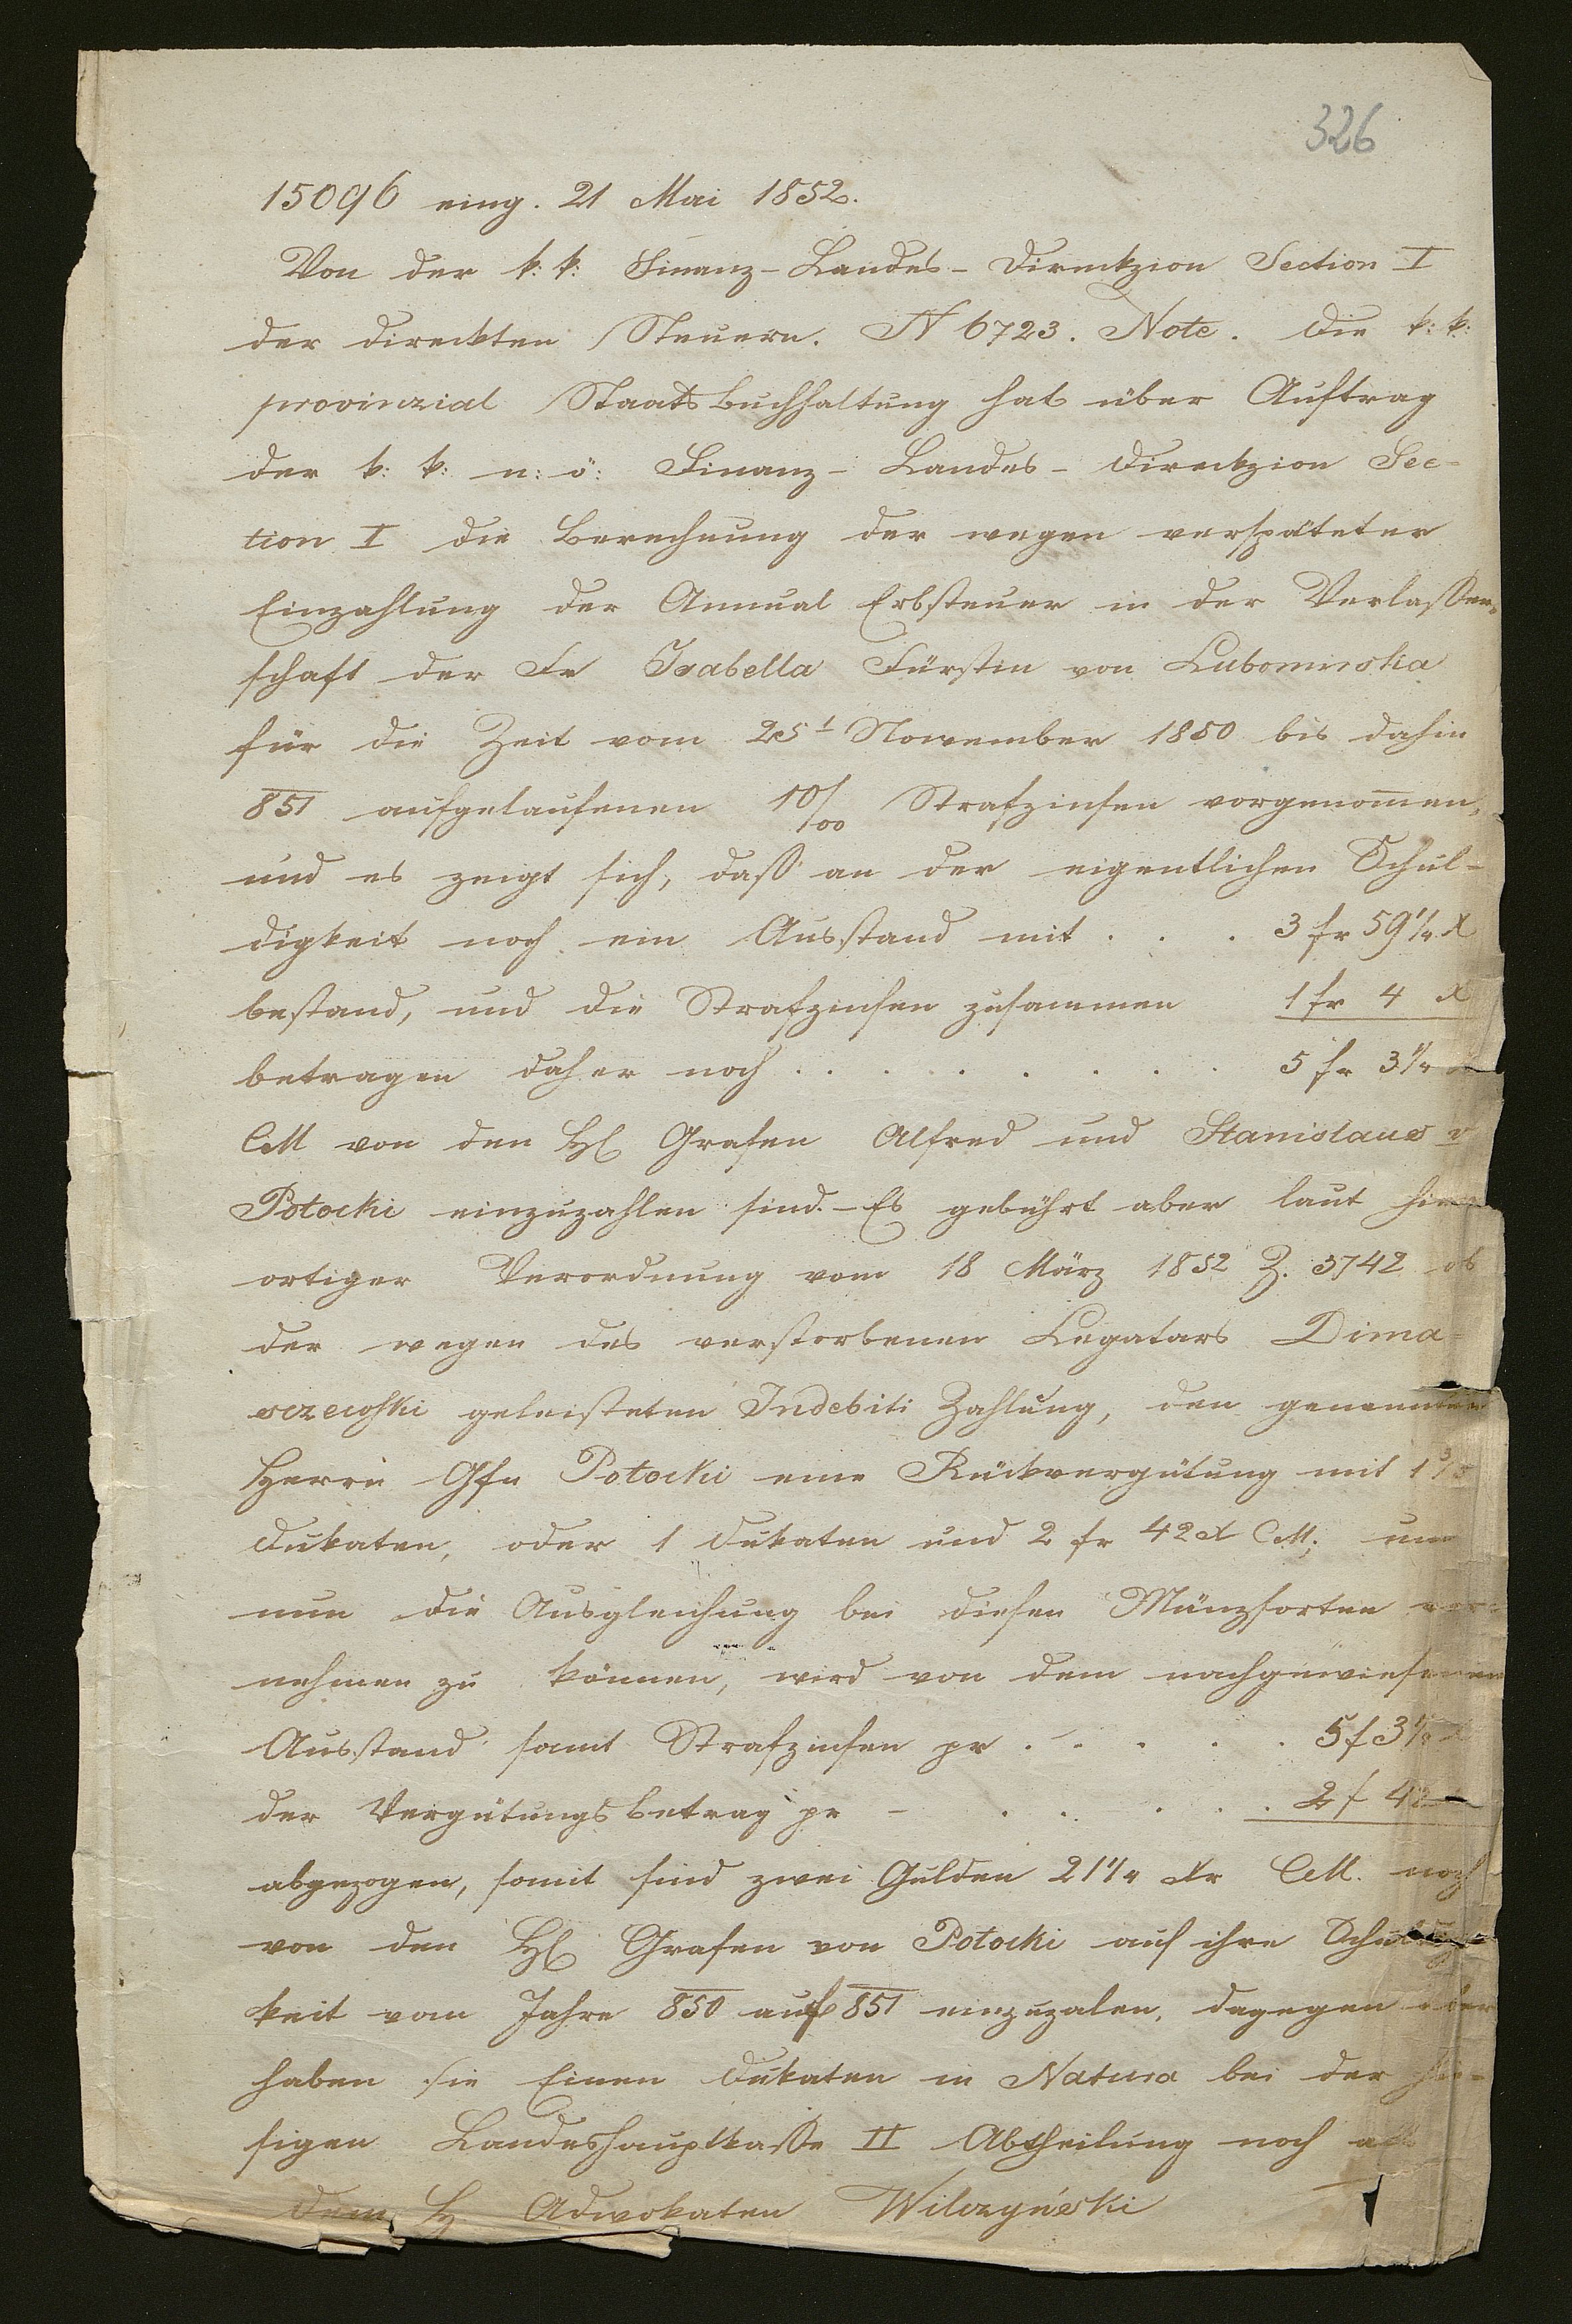 326
15096 eing. 21 Mai 1852.
Von der k: k: Finanz-Landes-Direckzion Section I
der direckten Steuern. N 6723. Note. Die k: k:
provinzial Staats buchhaltung hat über Auftrag
der k: k: n: ö: Finanz-Landes-Direckzion Sec-
tion I die Berechnung der wegen verspäteter
Einzahlung der Annual Erbsteuer in der Verlassen-
schaft der Fr Isabella Fürstin von Lubomirska
für die Zeit vom 25t November 1850 bis dahin
851 aufgelaufenen 10/00 Strafzinsen vorgenommen,
und es zeigt sich, daß an der eigentlichen Schul-
digkeit noch ein Ausstand mit . . . 3 fr 59 1/4 X
bestand, und die Strafzinsen zusammen 1 fr 4 X
betragen daher noch . . . . . . . . 5 fr 3 1/4 X
CM von den H Grafen Alfred und Stanislaus v
Potocki einzuzahlen sind.-Es gebührt aber laut hier
ortiger Verordnung vom 18 März 1852 Z. 3742 ob
der wegen des verstorbenen Legatars Dima-
szewski geleisteten Indebiti Zahlung, den genannten
Herrn Gfn Potocki eine Rückvergütung mit 1 3/5
Dukaten, oder 1 Dukaten und 2 fr 42 X CM; um
nun die Ausgleichung bei diesen Münzsorten vor-
nehmen zu können, wird von dem nachgewiesenen
Ausstand samt Strafzinsen pr . . . . . 5 f 3 1/4 X
der Vergütungsbetrag pr - . . . . . 2 f 42
abgezogen, somit sind zwei Gulden 21 1/4 Xr CM. noch
von den H Grafen von Potocki auf ihre Schuldig-
keit vom Jahre 850 auf 851 einzuzalen, dagegen aber
haben sie Einen Dukaten in Natura bei der hie-
sigen Landeshauptkasse II Abtheilung noch
dem H Adwokaten Wilczyński